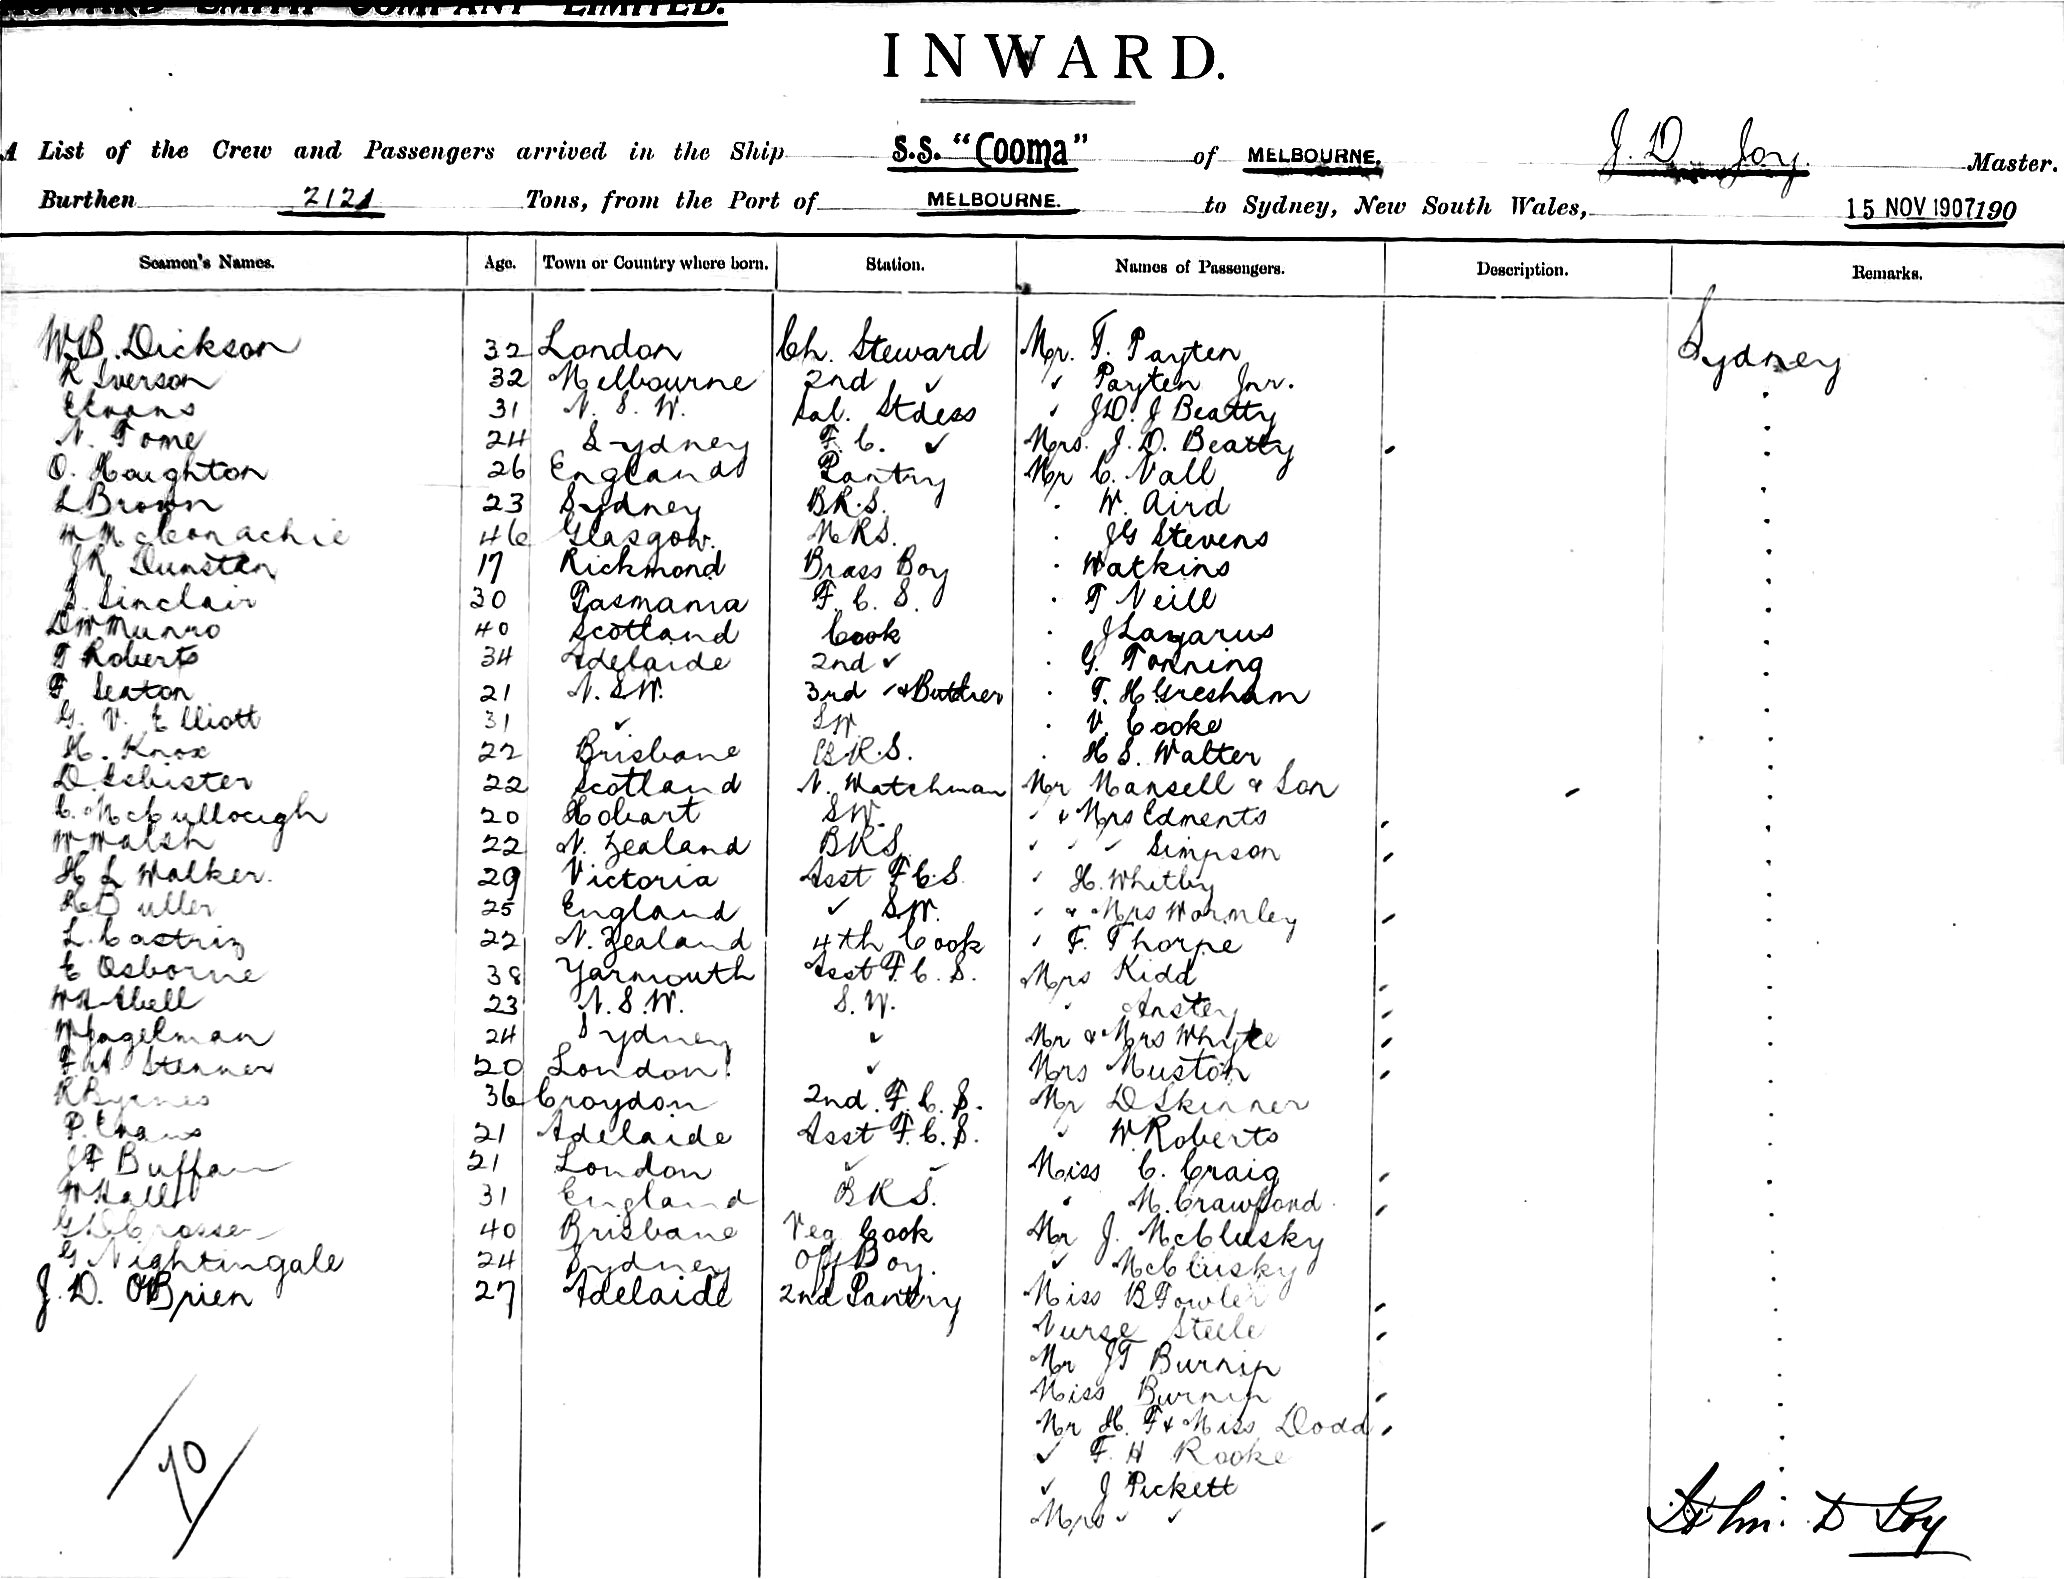 HOWARD SMITH COMPANY LIMITED.
INWARD.
A List of the Crew and Passengers arrived in the Ship S.S. "Cooma" of MELBOURNE. J. D. Joy. Master.
Burthen 2121 Tons, from the Port of MELBOURNE. to Sydney, New South Wales, 15 NOV 1907 190
Seamen's Names. Age. Town or Country where born. Station. Names of Passengers. Description. Remarks.
W B. Dickson 32 London Ch. Steward Mr. T. Payten Sydney
R Iverson 32 Melbourne 2nd ✓ ✓ Payten Jnr.
Evans 31 N. S. W. Sal. Stdess ✓ J.D. J Beatty
N. Tome 24 Sydney F. C. ✓ Mrs. J. D. Beatty
O. Houghton 26 England Pantry Mr C. Vall
L Brown 23 Sydney B.R.S. W. Aird
W McConachie 46 Glasgow. M R S. J G Stevens
J R Dunstan 17 Richmond Brass Boy Watkins
S. Sinclair 30 Tasmania F. C. S. T Neill
D W Munro 40 Scotland Cook J Lazarus
T Roberts 34 Adelaide 2nd ✓ G. Tonning
F. Seaton 21 N. S.W. 3rd ✓ & Butcher T. H Gresham
G. V. Elliott 31 ✓ S W V. Cooke
H. Knox 22 Brisbane B.R.S. H S. Walter
D. Isbister 22 Scotland N. Watchman Mr Mansell & Son
C. McCullough 20 Hobart S W. ✓ & Mrs Edments
W Walsh 22 N. Zealand B R S. ✓ ✓ ✓ Simpson
H L Walker. 29 Victoria Asst F. C. S. ✓ H. Whitby
H Buller 25 England ✓ S.W. ✓ & Mrs Wormley
L. Castriz 22 N. Zealand 4th Cook ✓ F. Thorpe
E Osborne 38 Yarmouth Asst F. C. S. Mrs Kidd
W H Abell 23 N. S. W. S. W. Anstey
W Fagelman 24 Sydney ✓ Mr & Mrs Whyte
F W Stenner 20 London. ✓ Mrs Muston
R Byrnes 36 Croydon 2nd. F. C. S. Mr D Skinner
P. Evans 21 Adelaide Asst F. C. S. ✓ W. Roberts
J F Buffam 21 London ✓ ✓ Miss C. Craig
W Hall 31 England B R S. M. Crawford
Crosser 40 Brisbane Veg Cook Mr J. McClusky
G Nightingale 24 Sydney Off Boy. ✓ McClusky
J. D. O'Brien 27 Adelaide 2nd Pantry Miss B Fowler
Nurse Steele
Mr J T Burnip
Miss Burnip
Mr H. F & Miss Dodd
✓ F. H Rooke
✓ J Pickett
Mrs ✓ ✓
70
John D Joy